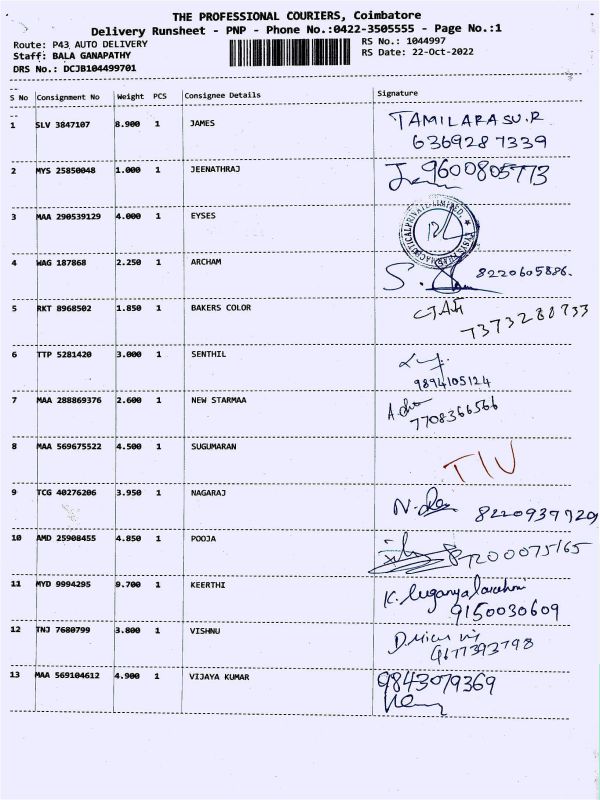 THE PROFESSIONAL COURIERS, Coimbatore
Delivery Runsheet - PNP - Phone No.:0422-3505555 - Page No.:1
Route: P43 AUTO DELIVERY
RS No.: 1044997
Staff: BALA GANAPATHY
RS Date: 22-Oct-2022
DRS No.: DCJB104499701
S No Consignment No Weight PCS Consignee Details Signature
1 SLV 3847107 8.900 1 JAMES TAMILARASU.R
6369287339
2 MYS 25850048 1.000 1 JEENATHRAJ 9600805773
3 MAA 290539129 4.000 1 EYSES
4 WAG 187868 2.250 1 ARCHAM 8220605886.
5 RKT 8968502 1.850 1 BAKERS COLOR
7373288733
6 TTP 5281420 3.000 1 SENTHIL
9894105124
7 MAA 288869376 2.600 1 NEW STARMAA
7708366566
8 MAA 569675522 4.500 1 SUGUMARAN
9 TCG 40276206 3.950 1 NAGARAJ
10 AMD 25908455 4.850 1 POOJA
11 MYD 9994295 9.700 1 KEERTHI K.
9150030609
12 TNJ 7680799 3.800 1 VISHNU
13 MAA 569104612 4.900 1 VIJAYA KUMAR 9843079369